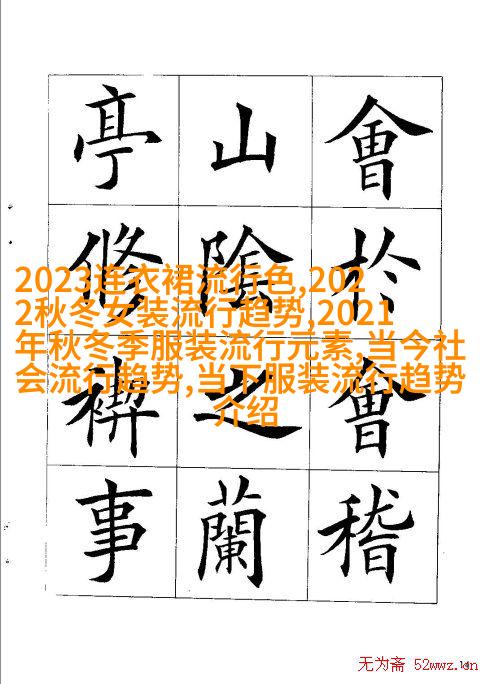 會於會稽
山陰之蘭
亭脩禊事
2023连衣裙流行色,202
2秋冬女装流行趋势,2021
年秋冬季服装流行元素,当今社
会流行趋势,当下服装流行趋势
介绍
无为斋 52wwz.cn